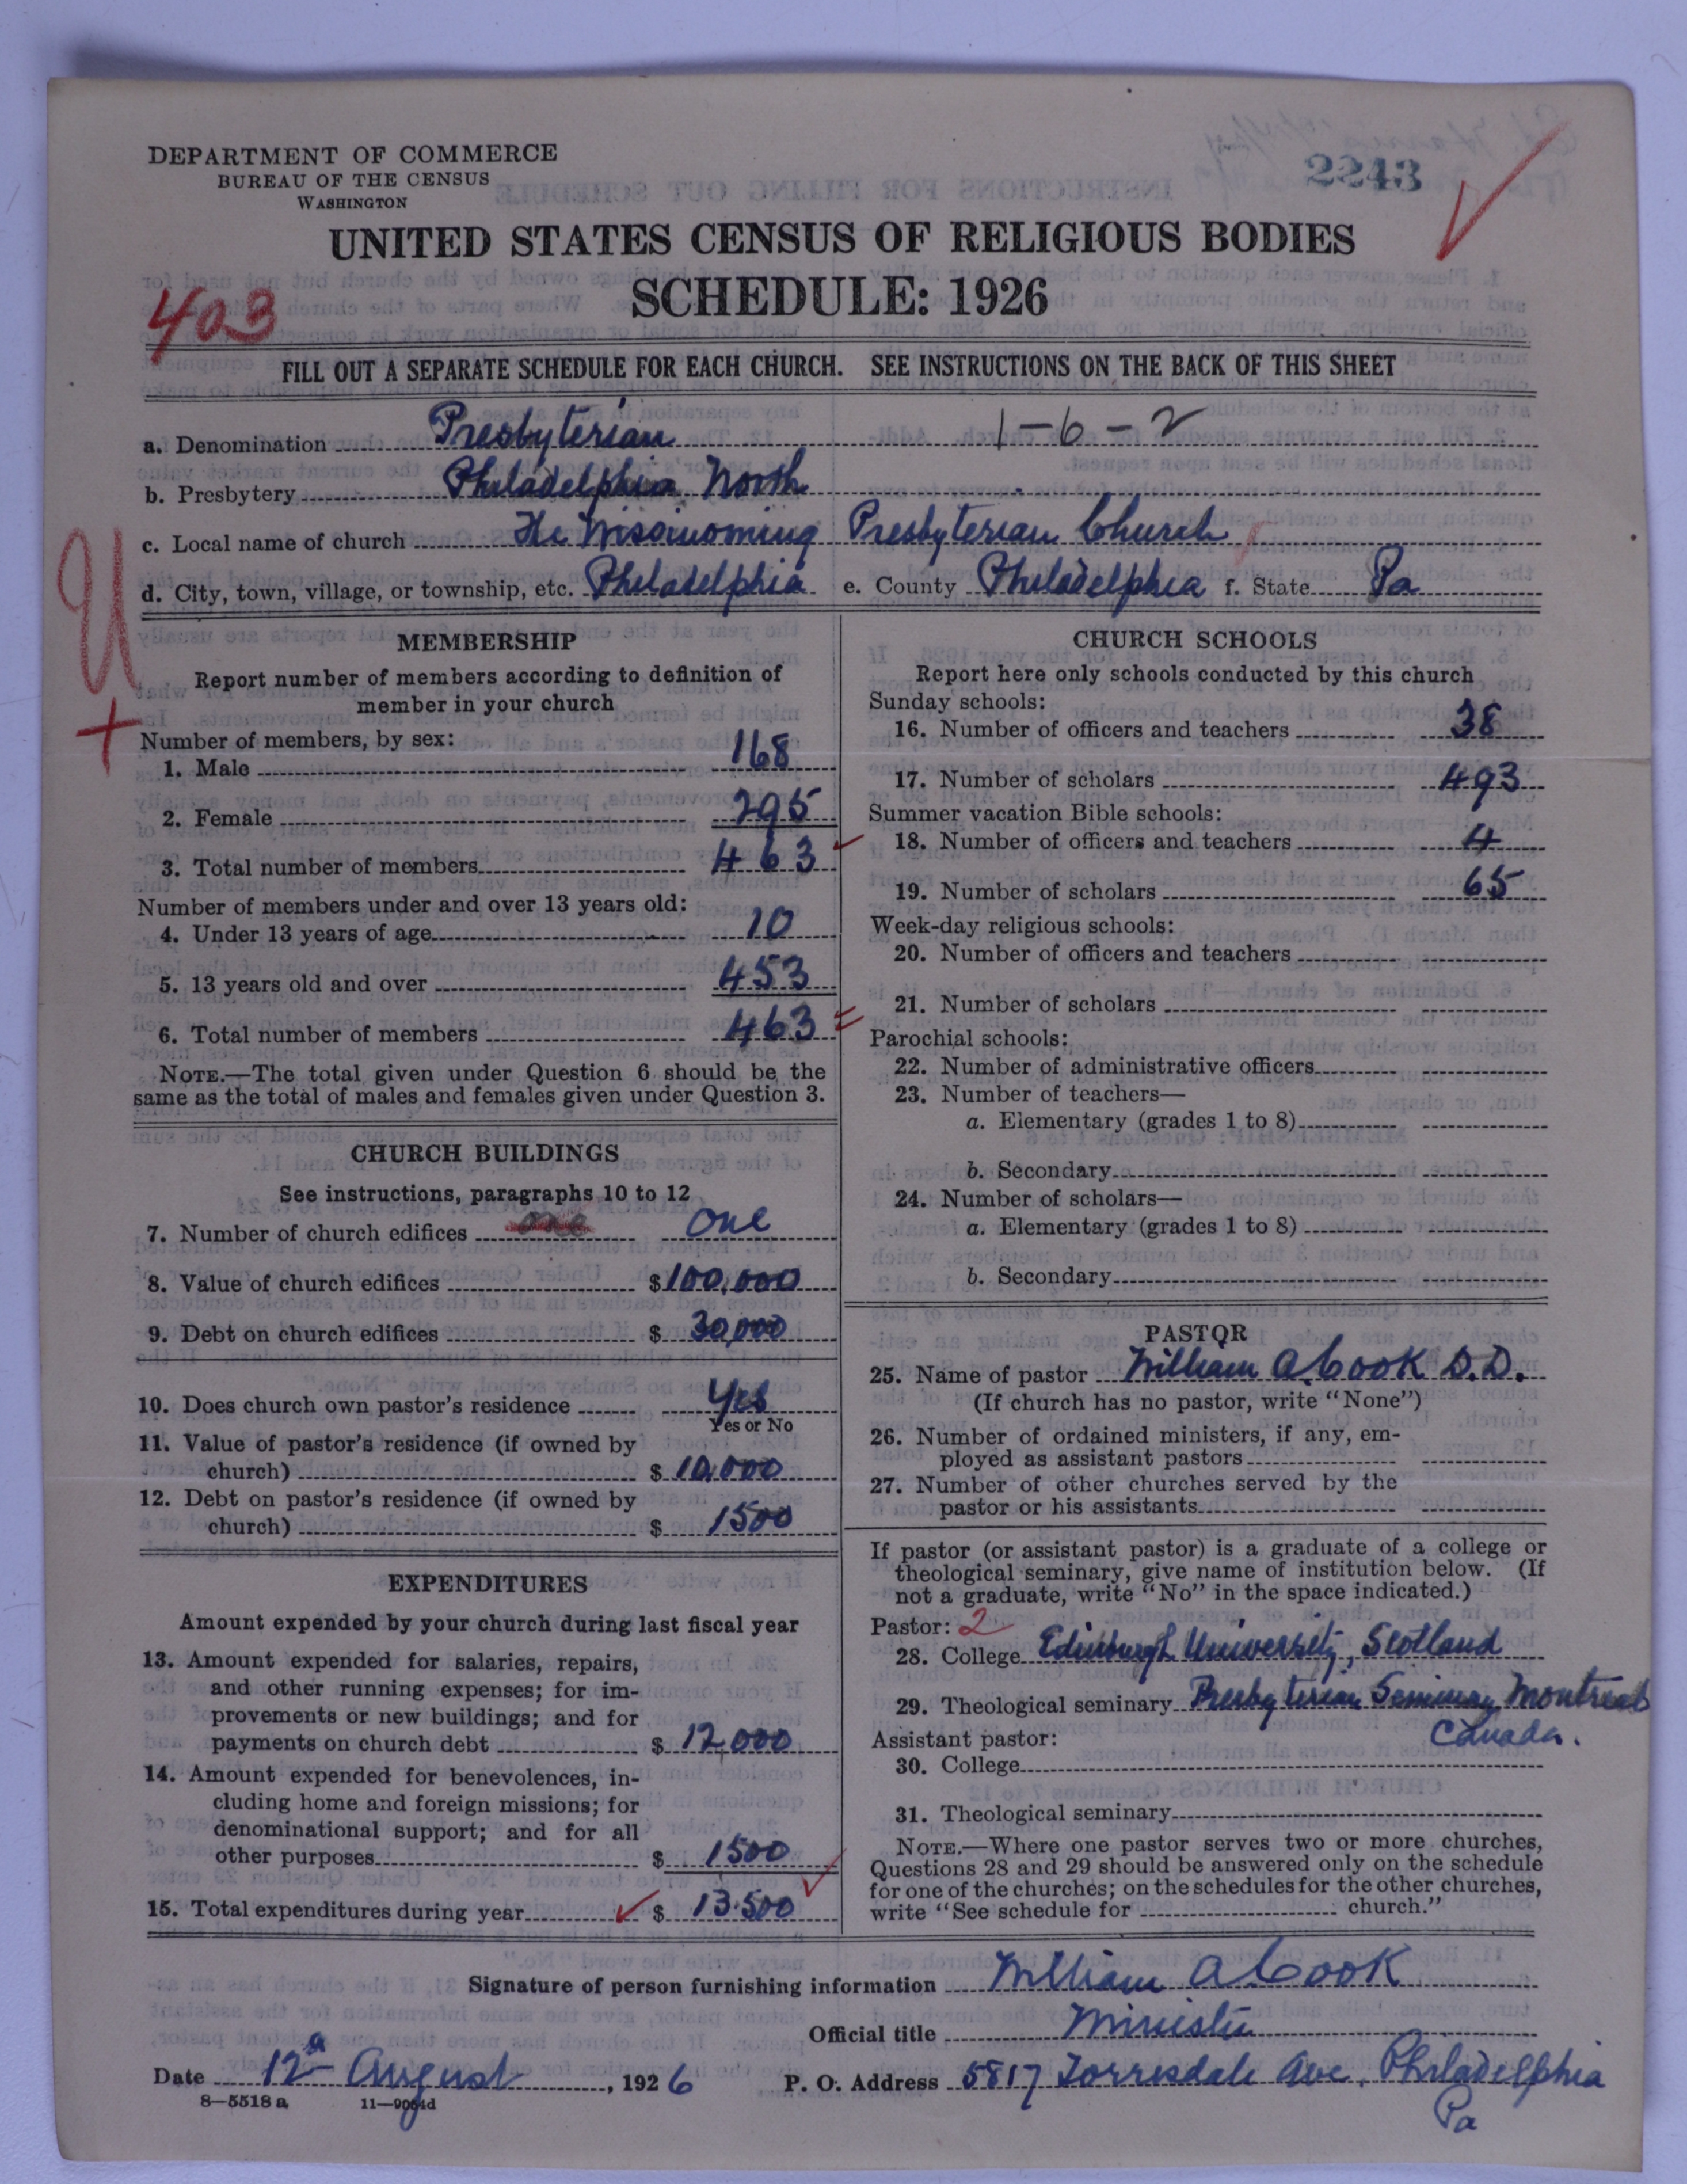 DEPARTMENT OF COMMERCE
BUREAU OF THE CENSUS
WASHINGTON
2243
UNITED STATES CENSUS OF RELIGIOUS BODIES
SCHEDULE: 1926
403
FILL OUT A SEPARATE SCHEDULE FOR EACH CHURCH. SEE INSTRUCTIONS ON THE BACK OF THIS SHEET
a. Denomination Presbyterian 1-6-2
b. Presbytery Philadelphia North
c. Local name of church The Wissinoming Presbyterian Church
d. City, town, village, or township, etc. Philadelphia e. County Philadelphia f. State Pa
MEMBERSHIP
Report number of members according to definition of
member in your church
Number of members, by sex:
1. Male 168
2. Female 295
3. Total number of members 463
Number of members under and over 13 years old:
4. Under 13 years of age 10
5. 13 years old and over 453
6. Total number of members 463
NOTE.—The total given under Question 6 should be the
same as the total of males and females given under Question 3.
CHURCH BUILDINGS
See instructions, paragraphs 10 to 12
7. Number of church edifices one one
8. Value of church edifices $100,000
9. Debt on church edifices $ 30,000
10. Does church own pastor's residence Yes
Yes or No
11. Value of pastor's residence (if owned by
church) $ 10,000
12. Debt on pastor's residence (if owned by
church) $ 1500
EXPENDITURES
Amount expended by your church during last fiscal year
13. Amount expended for salaries, repairs,
and other running expenses; for im-
provements or new buildings; and for
payments on church debt $ 12,000
14. Amount expended for benevolences, in-
cluding home and foreign missions; for
denominational support; and for all
other purposes $ 1500
15. Total expenditures during year $ 13.500
CHURCH SCHOOLS
Report here only schools conducted by this church
Sunday schools:
16. Number of officers and teachers 38
17. Number of scholars 493
Summer vacation Bible schools:
18. Number of officers and teachers 4
19. Number of scholars 65
Week-day religious schools:
20. Number of officers and teachers
21. Number of scholars
Parochial schools:
22. Number of administrative officers
23. Number of teachers—
a. Elementary (grades 1 to 8)
b. Secondary
24. Number of scholars—
a. Elementary (grades 1 to 8)
b. Secondary
PASTOR
25. Name of pastor William A. Cook D.D.
(If church has no pastor, write "None")
26. Number of ordained ministers, if any, em-
ployed as assistant pastors
27. Number of other churches served by the
pastor or his assistants
If pastor (or assistant pastor) is a graduate of a college or
theological seminary, give name of institution below. (If
not a graduate, write "No" in the space indicated.)
Pastor: 2
28. College Edinburgh University, Scotland
29. Theological seminary Presbyterian Seminary Montreal
Canada.
Assistant pastor:
30. College
31. Theological seminary
NOTE.—Where one pastor serves two or more churches,
Questions 28 and 29 should be answered only on the schedule
for one of the churches; on the schedules for the other churches,
write "See schedule for church."
Signature of person furnishing information William A Cook
Official title Minister
Date 12th August, 1926 P. O. Address 5817 Torresdale Ave. Philadelphia
Pa
8—5518 a 11—9054d